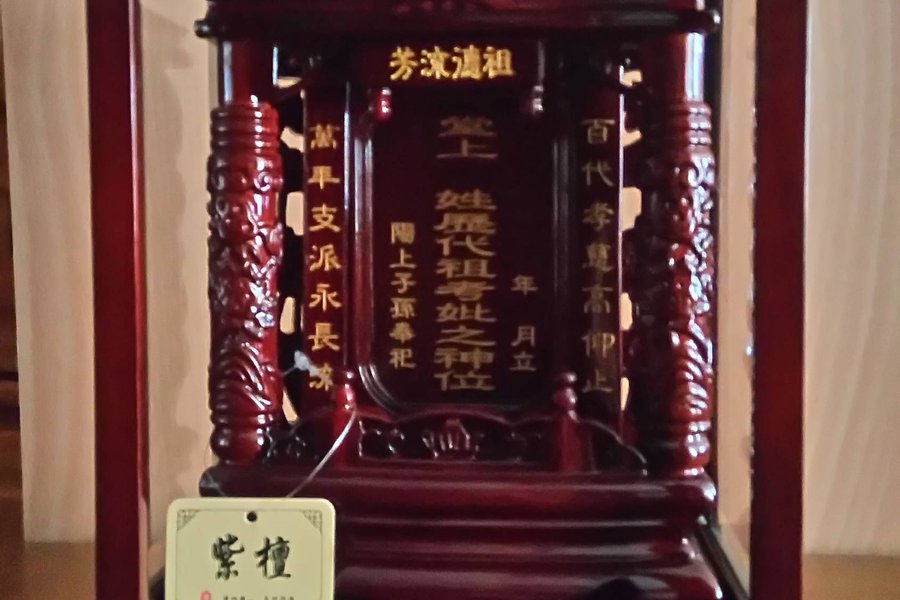 祖遺流芳
百代孝慈高仰止
年 月立
堂上 姓歷代祖考妣之神位
陽上子孫奉祀
萬年支派永長流
紫檀